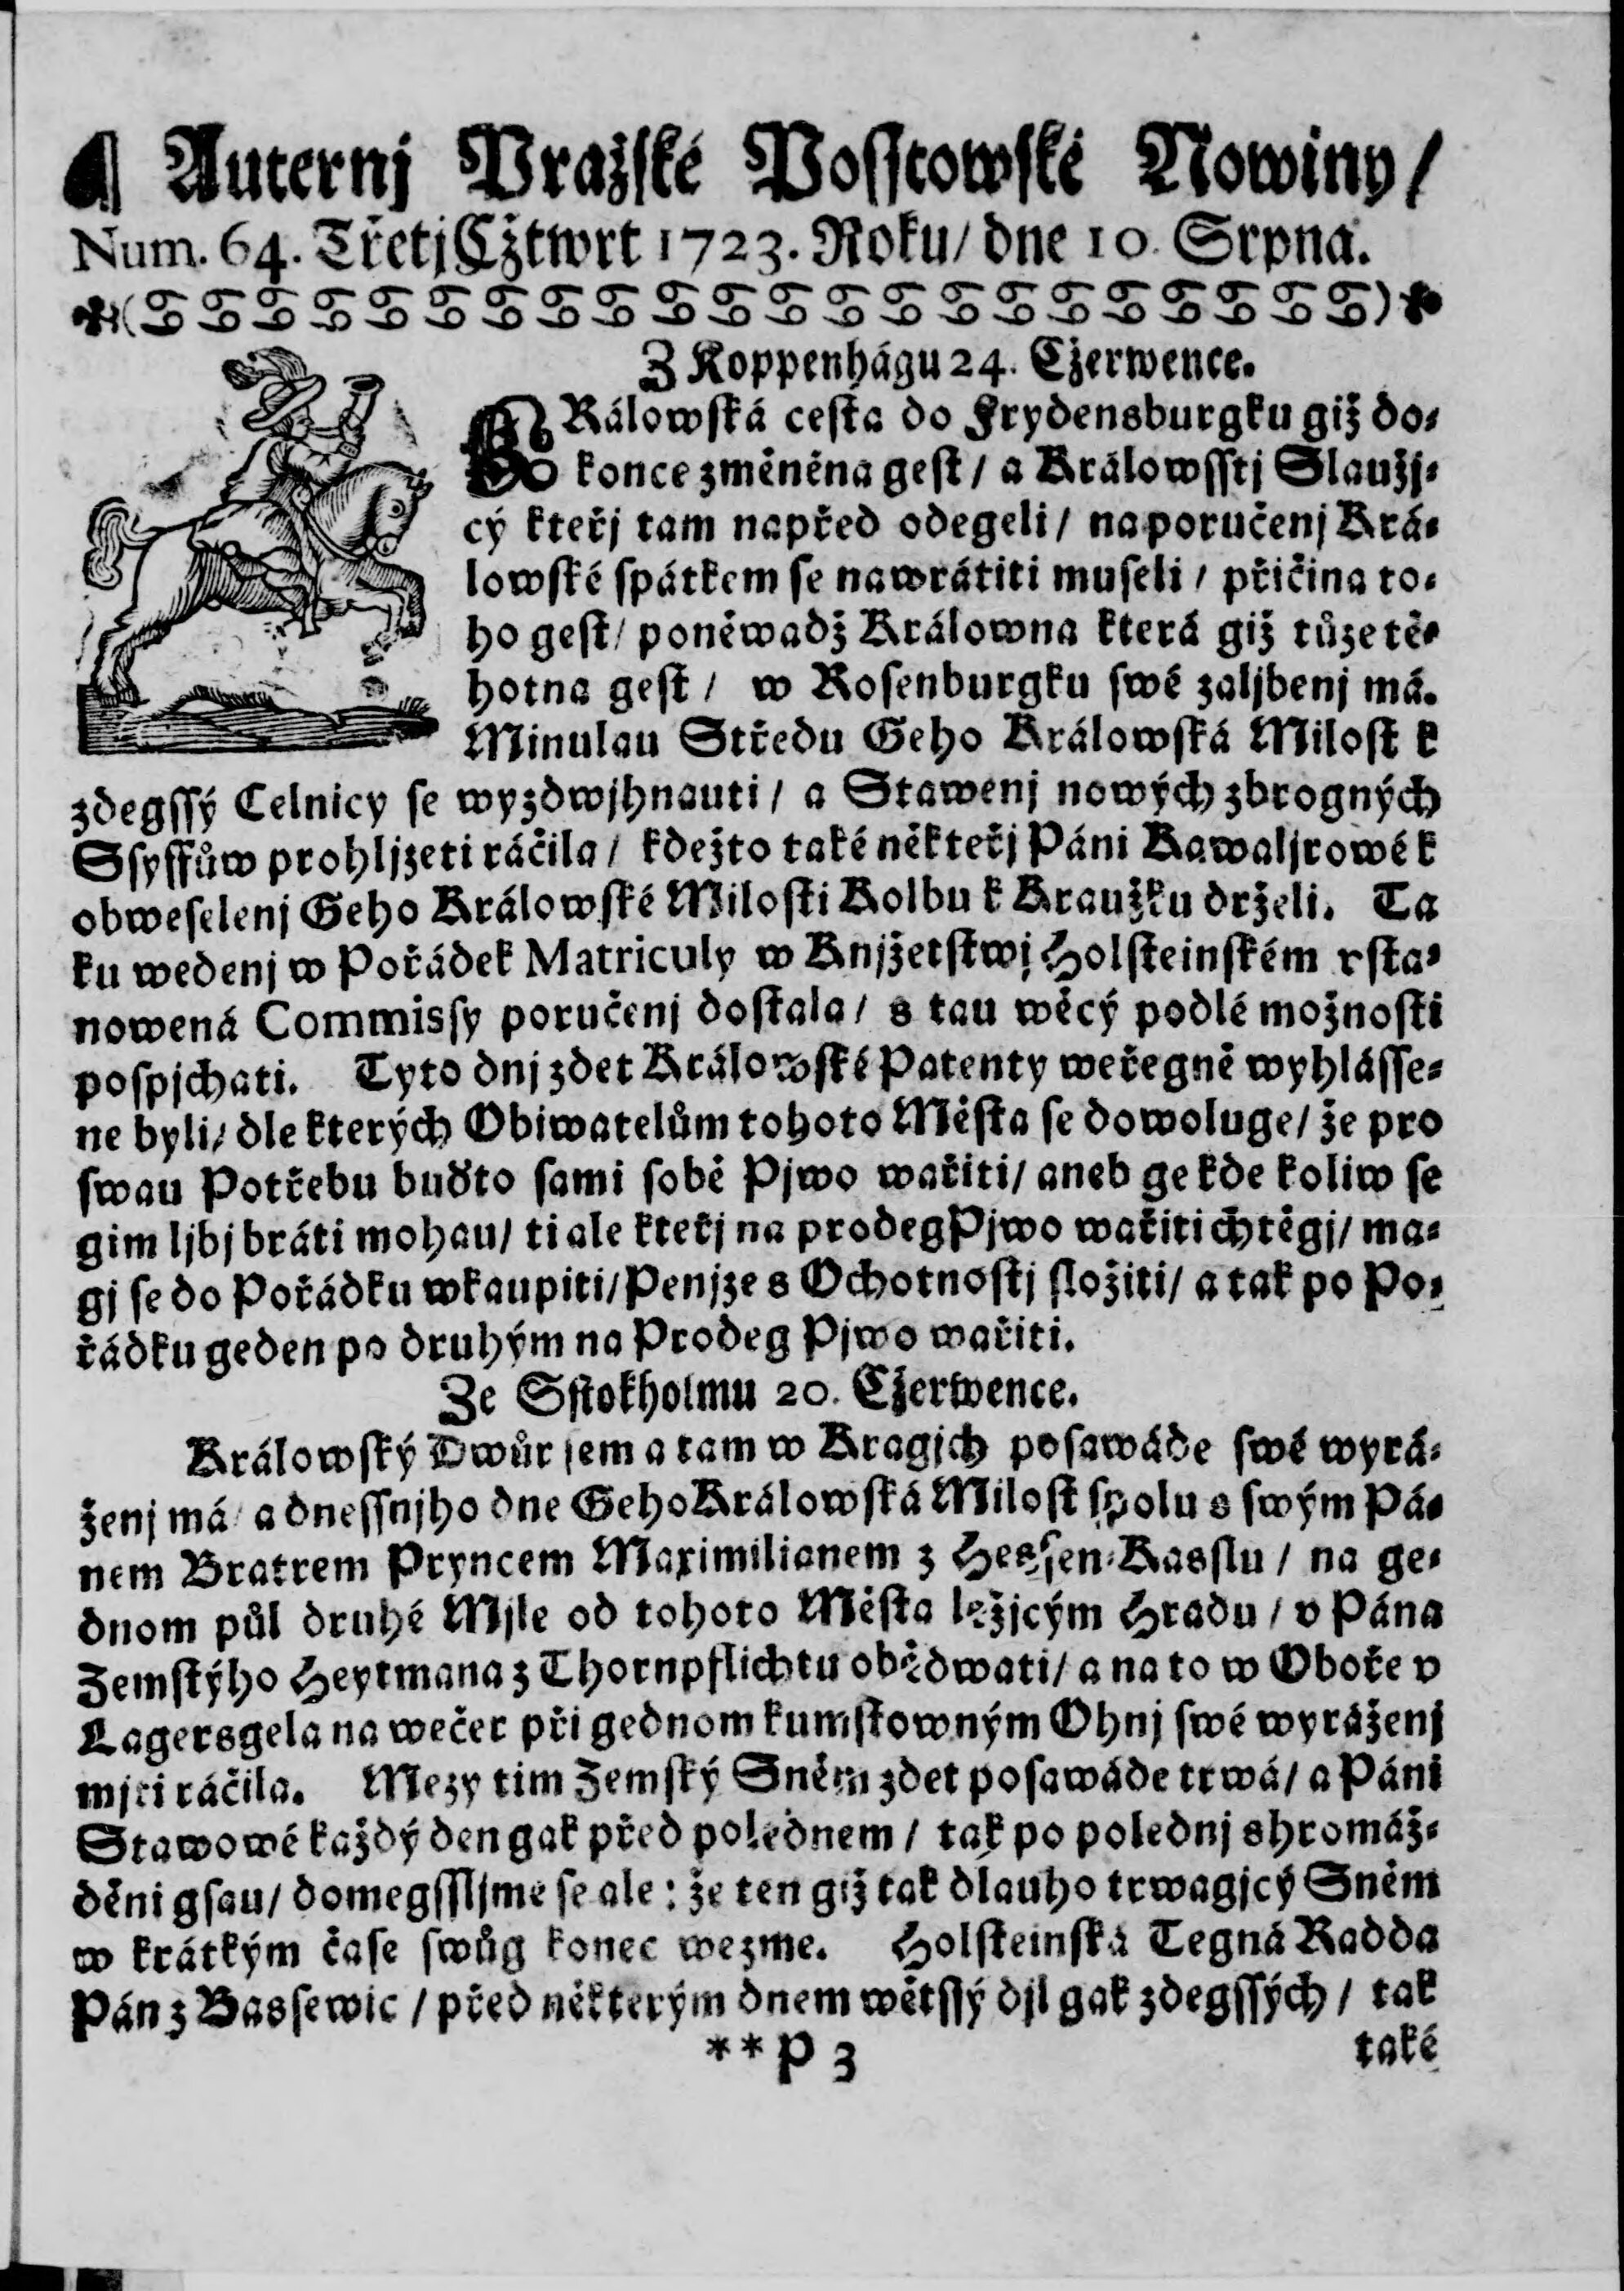 ¶ Auternj Pražské Posstowské Nowiny /
Num. 64. Třetj Cžtwrt 1723. Roku / dne 10. Srpna.
Z Koppenhágu 24. Cžerwence.
KRálowská cesta do Frydensburgku giž do-
konce změněna gest / a Králowsstj Slaužj-
cý kteřj tam napřed odegeli / na poručenj Krá-
lowské spátkem se nawrátiti museli / přičina to-
ho gest / poněwadž Králowna která giž tůze tě-
hotna gest / w Rosenburgku swé zaljbenj má.
Minulau Středu Geho Králowská Milost k
zdegssý Celnicy se wyzdwjhnauti / a Stawenj nowých zbrogných
Ssyffůw prohljzeti ráčila / kdežto také někteřj Páni Kawaljrowé k
obweselenj Geho Králowské Milosti Kolbu k Kraužku drželi. Ta
ku wedenj w Pořádek Matriculy w Knjžetstwj Holsteinském vsta-
nowená Commissy poručenj dostala / s tau wěcý podlé možnosti
pospjchati. Tyto dnj zdet Králowské Patenty weřegně wyhlásse-
ne byli / dle kterých Obiwatelům tohoto Města se dowoluge / že pro
swau Potřebu buďto sami sobě Pjwo wařiti / aneb ge kde koliw se
gim ljbj bráti mohau / ti ale kteřj na prodeg Pjwo wařiti chtěgj / ma-
gj se do Pořádku wkaupiti / Penjze s Ochotnostj složiti / a tak po Po-
řádku geden po druhým na Prodeg Pjwo wařiti.
Ze Sstokholmu 20. Cžerwence.
Králowský Dwůr sem a tam w Kragjch posawáde swé wyrá-
ženj má / a dnessnjho dne Geho Králowská Milost spolu s swým Pá-
nem Bratrem Pryncem Maximilianem z Hessen-Kasslu / na ge-
dnom půl druhé Mjle od tohoto Města ležjcým Hradu / v Pána
Zemskýho Heytmana z Thornpflichtu obědwati / a na to w Oboře v
Lagersgela na wečer při gednom kumstowným Ohnj swé wyráženj
mjti ráčila. Mezy tim Zemský Sněm zdet posawáde trwá / a Páni
Stawowé každý den gak před polednem / tak po polednj shromáž-
děni gsau / domegssljme se ale : že ten giž tak dlauho trwagjcý Sněm
w krátkým čase swůg konec wezme. Holsteinská Tegná Radda
Pán z Bassewic / před některým dnem wětssý djl gak zdegssých / tak
**P 3 také